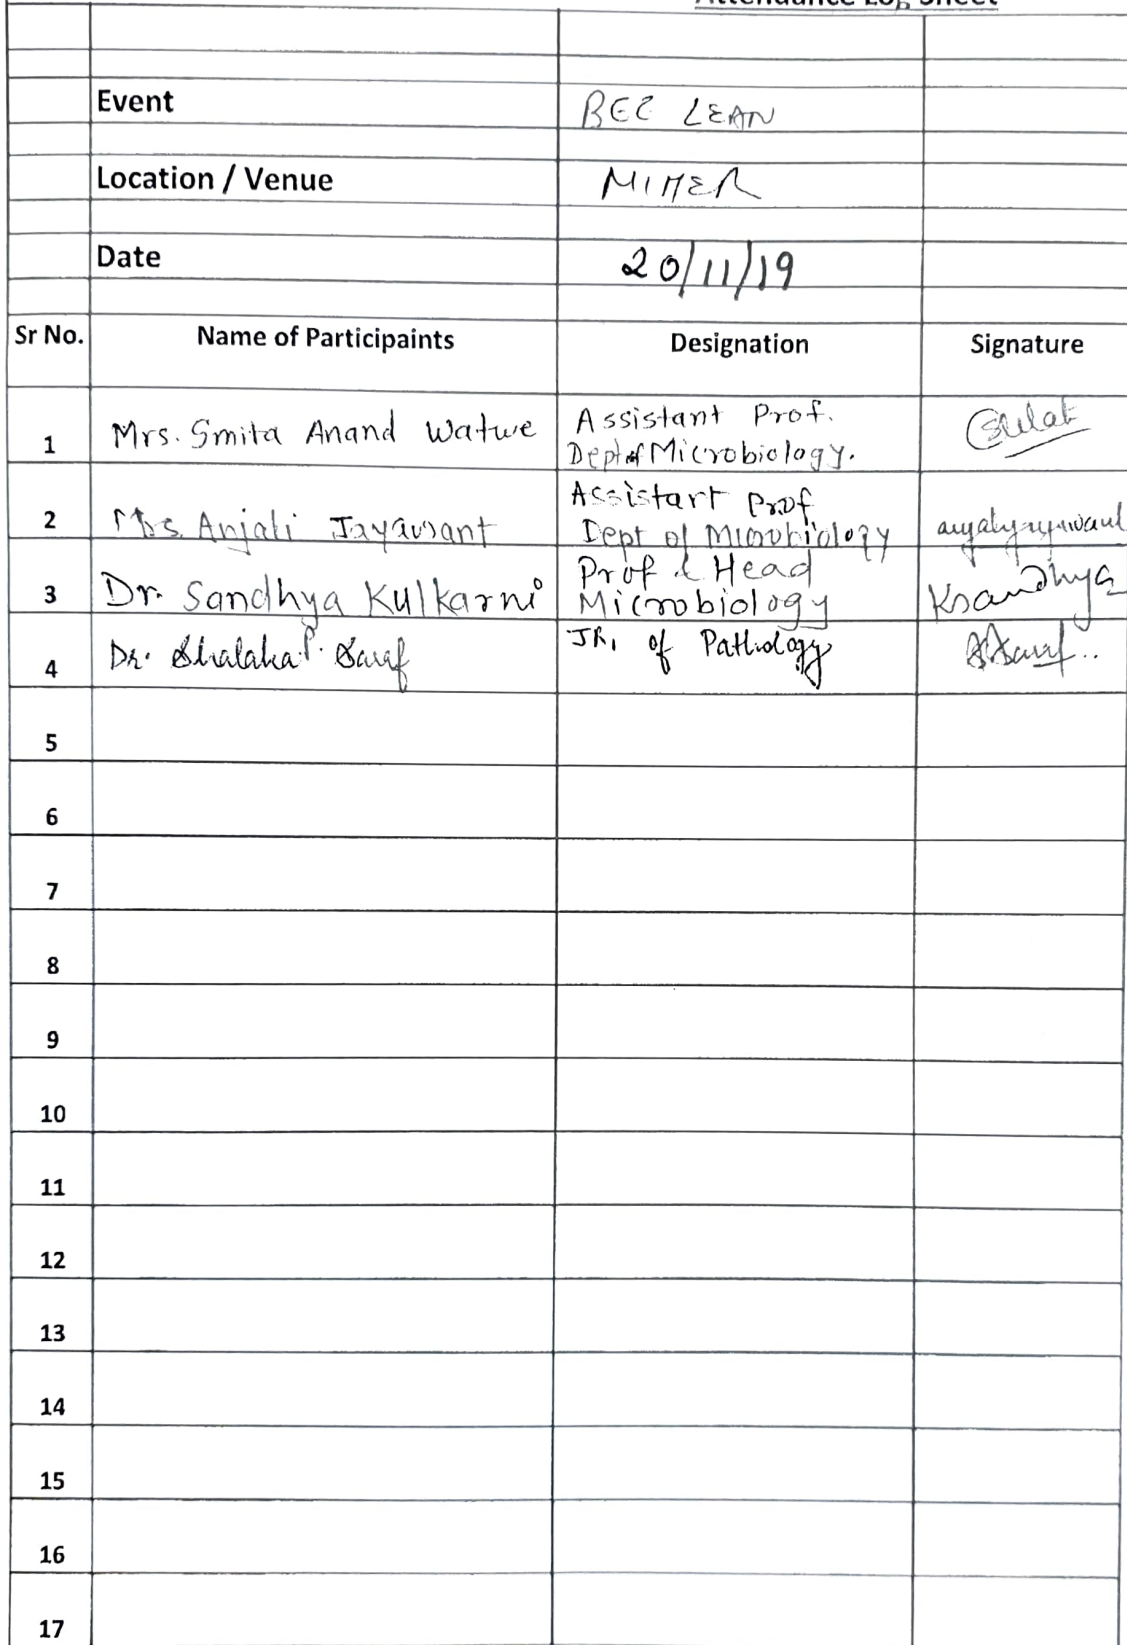 Attendance Log Sheet
Event BEC LEAN
Location / Venue MIMER
Date 20/11/19
Sr No. Name of Participaints Designation Signature
1 Mrs. Smita Anand Watwe Assistant Prof.
Dept of Microbiology.
2 Mrs. Anjali Jayawant Assistart Prof
Dept of Microbiology
3 Dr. Sandhya Kulkarni Prof & Head
Microbiology Ksandhya
4 Dr. Shalaka P. Saraf JR1 of Pathology
5
6
7
8
9
10
11
12
13
14
15
16
17